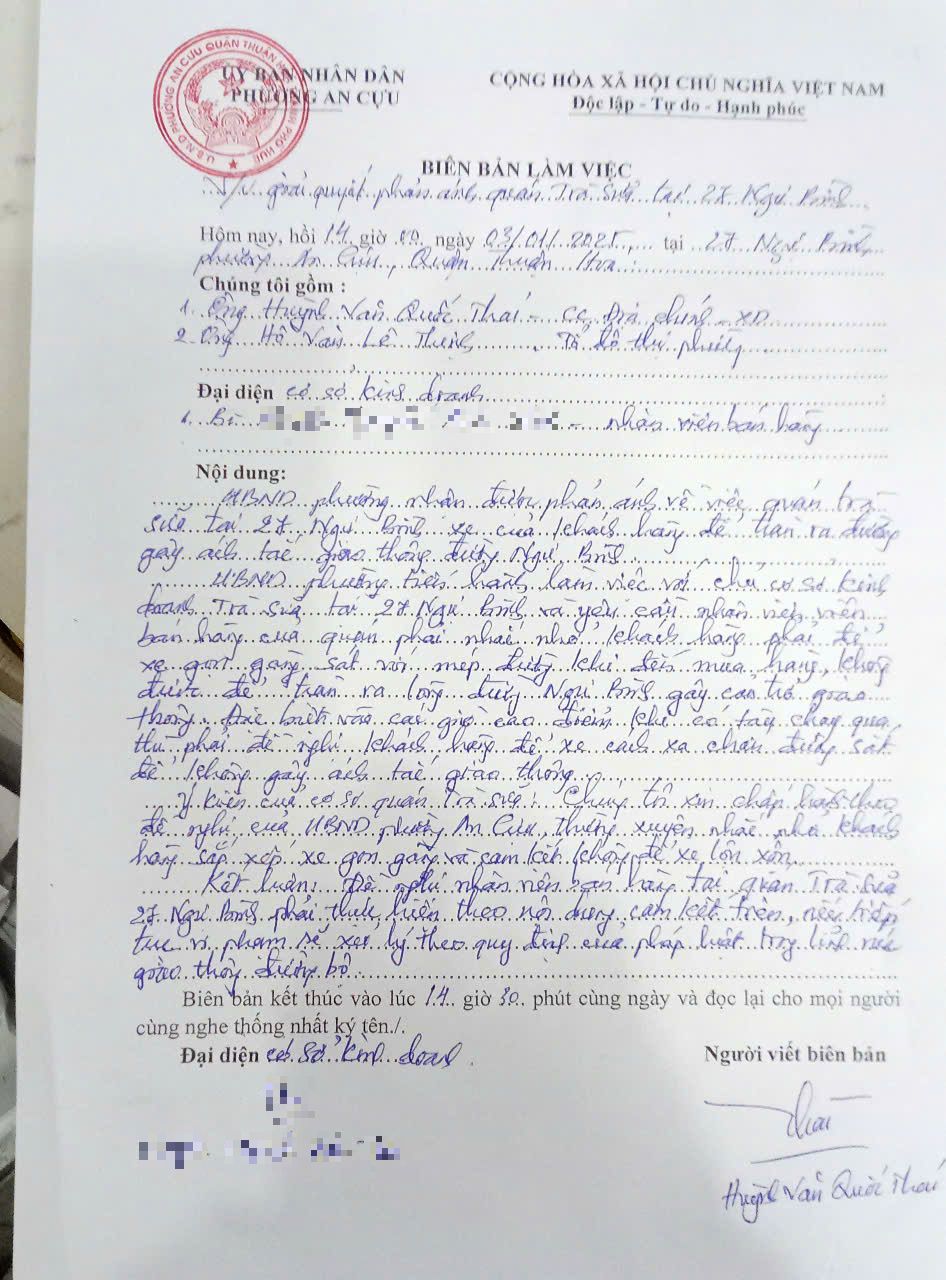 U.B.N.D PHƯỜNG AN CỰU QUẬN THUẬN HÓA THÀNH PHỐ HUẾ
ỦY BAN NHÂN DÂN
PHƯỜNG AN CỰU
CỘNG HÒA XÃ HỘI CHỦ NGHĨA VIỆT NAM
Độc lập - Tự do - Hạnh phúc
BIÊN BẢN LÀM VIỆC
V/v giải quyết phản ánh quán Trà sữa tại 27 Ngự Bình
Hôm nay, hồi 14 giờ 00 ngày 03/01/2025, tại 27 Ngự Bình,
phường An Cựu, Quận Thuận Hóa
Chúng tôi gồm :
1. Ông Huỳnh Văn Quốc Thái - CC Địa chính - XD
2. Ông Hồ Văn Lê Thịnh Tổ đô thị phường
Đại diện cơ sở kinh doanh
1. Bà - nhân viên bán hàng
Nội dung:
UBND phường nhận được phản ánh về việc quán trà
sữa tại 27 Ngự Bình xe của khách hàng để tràn ra đường
gây ách tắc giao thông đường Ngự Bình
UBND phường tiến hành làm việc với chủ cơ sở kinh
doanh Trà sữa tại 27 Ngự Bình và yêu cầu nhân viên viên
bán hàng của quán phải nhắc nhở khách hàng phải để
xe gọn gàng sát với mép đường khi đến mua hàng, không
được để tràn ra lòng đường Ngự Bình gây cản trở giao
thông. Đặc biệt vào các giờ cao điểm khi có tàu chạy qua,
thì phải đề nghị khách hàng để xe cách xa chắn đường sắt
để không gây ách tắc giao thông.
Ý kiến của cơ sở quán Trà sữa: Chúng tôi xin chấp hành theo
đề nghị của UBND phường An Cựu, thường xuyên nhắc nhở khách
hàng sắp xếp xe gọn gàng và cam kết không để xe lộn xộn.
Kết luận: Đề nghị nhân viên bán hàng tại quán Trà sữa
27 Ngự Bình phải thực hiện theo nội dung cam kết trên, nếu tiếp
tục vi phạm sẽ xử lý theo quy định của pháp luật trong lĩnh vực
giao thông đường bộ
Biên bản kết thúc vào lúc 14 giờ 30 phút cùng ngày và đọc lại cho mọi người
cùng nghe thống nhất ký tên./.
Đại diện cơ sở kinh doanh
Người viết biên bản
Thái
Huỳnh Văn Quốc Thái